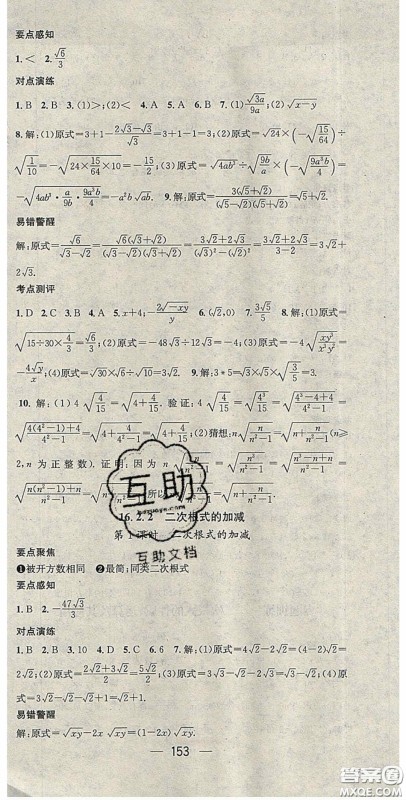 要点感知
1.< 2.√6/3
对点演练
1.B 2.B 3.(1)>;(2)< 4.A 5.A 6.B 7.(1)√(3a)/(9a);(2)√(x-y)
8.解:(1)原式=3+1-(2√3-√3)/√3=3+1-1=3;(2)原式=√24×(-√(15/64))÷
√(1/10)=-√(24×15/64×10)=-15/2;(3)原式=√(4ab³)÷√(9b/a)×(-√(9a³b/4))=
-√(4ab³·a/(9b)·9a³b/4)=-a²b√(ab). 9.解:原式=3(√5+√2)/((√5)²-(√2)²)=√5+√2.
易错警醒
解:原式=√6/(√3-√2)=√6(√3+√2)/((√3)²-(√2)²)=(3√2+2√3)/(3-2)=3√2+
2√3.
考点测评
1.D 2.C 3.A 4.B 5.x+2;-2√(-xy)/y 6.(√2,0) 7.3√5/5 8.解:(1)原式
=√(15÷30×4/3)=√6/3;(2)原式=-4√(3÷12)=-4
=-4√y/x;(3)原式=√30×√6÷√5=6. 9.解:3*5=
10.解:(1)4√(4/15)=√(4+4/15). 验证:4√(4/15)=
√((4(4²-1)+4)/(4²-1))=√(4+4/(4²-1))=√(4+4/15);(2)猜想:n√(n/(n²-1))=√(n+n/(n²-1))(n≥
2,n为正整数).证明:因为n√(n/(n²-1))
√((n(n²-1)+n)/(n²-1))=√(n+n/(n²-1)),所以
互助
互助文档
16.2.2 二次根式的加减
第1课时 二次根式的加减
要点聚焦
❶被开方数相同 ❷最简;同类二次根式
要点感知
1.B 2.-47√3/3
对点演练
1.B 2.B 3.B 4.10 5.C 6.解:(1)原式=4√2-2√2=(4-2)√2=
2√2;(2)原式=(2√2+3√2)/2=5√2/2;(3)原式=4√2-√2=3√2;(4)
原式=3√2-√2-√2=√2.
易错警醒
解:原式=√(xy)-2x√(xy)=(1-2x)√(xy).
153
答案圈
MXQE.COM